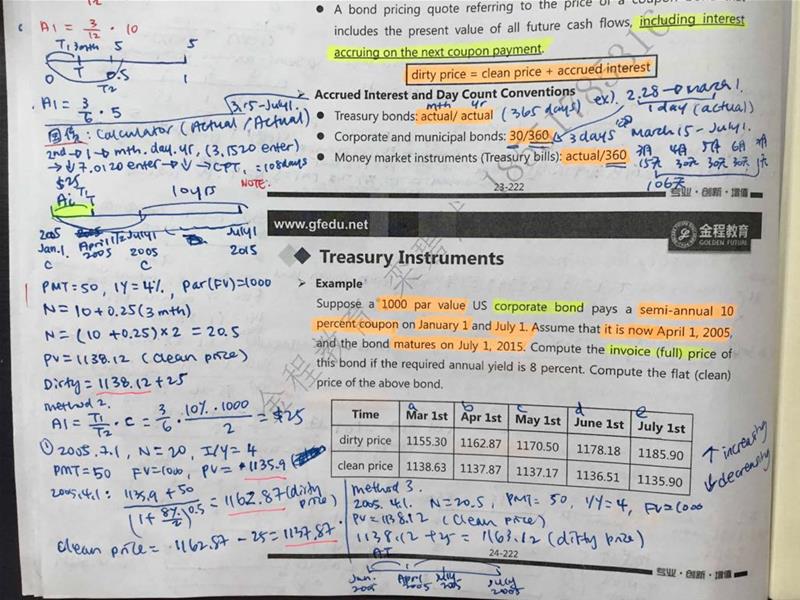 AI = 3/12 · 10
T₁ 3mth 5 5
0 T T₂ 0.5 1
AI = 3/6 · 5
3.15-July1.
国债: Calculator (Actual/Actual)
2nd → 1 → mth. day. yr, (3.1520 enter)
→ ↓ 7.0120 enter → ↓ → CPT, = 108days
NOTE:
$25
AI T₁
T 10yrs
2005 April1 T₂ July1 July1
Jan.1. 2005 2005 2015
C C
PMT=50, IY=4%, Par(FV)=1000
N=10+0.25(3mth)
N=(10+0.25)×2=20.5
PV=1138.12 (clean price)
Dirty=1138.12+25
method 2.
AI = T₁/T₂ · C = 3/6 · 10%·1000/2 = $25
① 2005.7.1, N=20, I/Y=4
PMT=50 FV=1000, PV=-1135.9
2005.4.1: 1135.9+50/(1+8%/2)^0.5 = 1162.87 (dirty price)
clean price= 1162.87 - 25 = 1137.87
A bond pricing quote referring to the price of a coupon bond that
includes the present value of all future cash flows, including interest
accruing on the next coupon payment.
dirty price = clean price + accrued interest
Accrued Interest and Day Count Conventions
mth yr
Treasury bonds: actual/ actual (365 days) ex). 2.28 → march 1.
1day (actual)
Corporate and municipal bonds: 30/360 3 days March 15 - July 1.
Money market instruments (Treasury bills): actual/360
3月 4月 5月 6月 7月
15天 30天 30天 30天 1天
106天
23-222
专业·创新·增值
www.gfedu.net
金程教育
GOLDEN FUTURE
Treasury Instruments
Example
Suppose a 1000 par value US corporate bond pays a semi-annual 10
percent coupon on January 1 and July 1. Assume that it is now April 1, 2005,
and the bond matures on July 1, 2015. Compute the invoice (full) price of
this bond if the required annual yield is 8 percent. Compute the flat (clean)
price of the above bond.
a b c d e
Time Mar 1st Apr 1st May 1st June 1st July 1st
dirty price 1155.30 1162.87 1170.50 1178.18 1185.90
clean price 1138.63 1137.87 1137.17 1136.51 1135.90
↑ increasing
↓ decreasing
method 3.
2005. 4.1. N=20.5, PMT=50, I/Y=4, FV=1000
PV=1138.12 (clean price)
1138.12 + 25 = 1163.12 (dirty price)
AI
Jan. April July July
2005 2005 2005 2005
24-222
专业·创新·增值